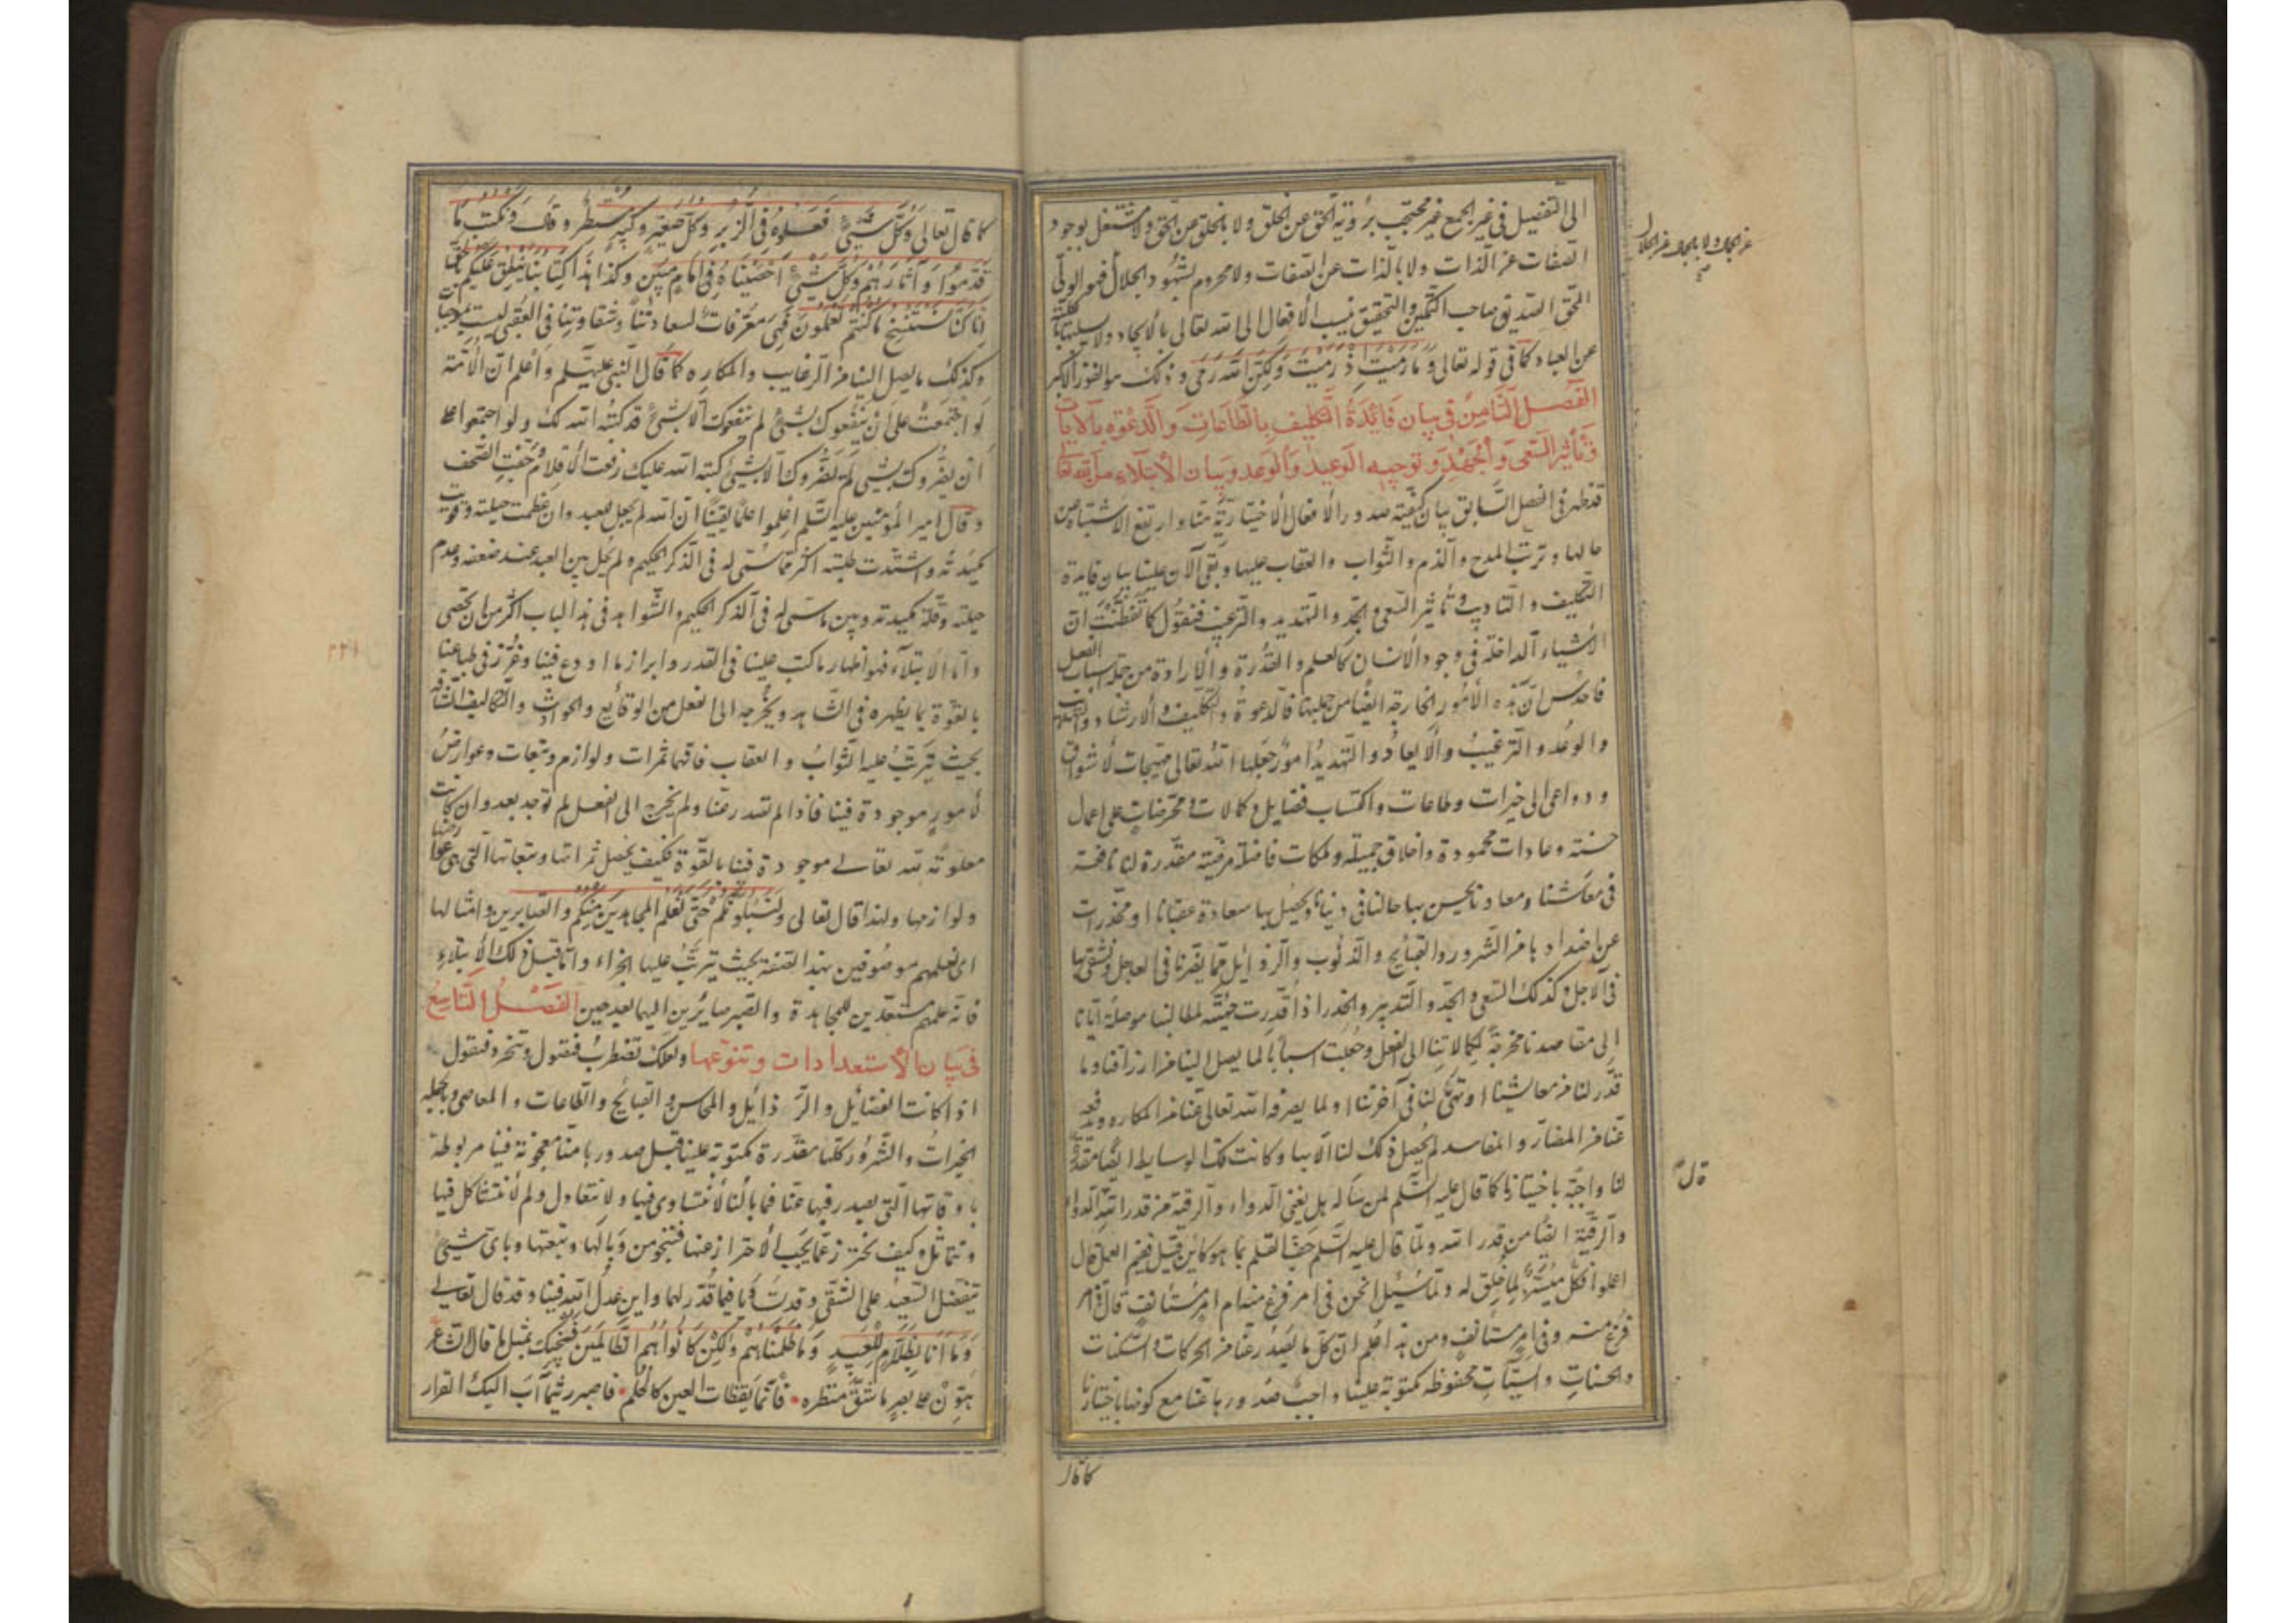 الى التفصيل فى غير الجمع غير محتجب برؤية الحق عن الخلق ولا بالخلق عن الحق ولا مشتغل بوجود
الصفات عن الذات ولا بالذات عن الصفات ولا محروم بشهود الجلال فهو الولى
عن الجمال ولا بالجمال عن الجلال
المحق الصديق صاحب التمكين والتحقيق ينسب الأفعال الى الله تعالى بالايجاد ولا يسلبها بالكلية
عن العباد كما فى قوله تعالى وَمَا رَمَيْتَ إِذْ رَمَيْتَ وَلَكِنَّ اللهَ رَمَى وذلك هو الفوز الاكبر
الفصل الثامن فى بيان فائدة التكليف بالطاعات والدعوة بالآيات
وتأثير السعى والجهد وتوجيه الوعيد والوعد وبيان الابتلاء من الله تعالى
قد ظهر فى الفصل السابق بيان كيفية صدور الأفعال الاختيارية منا وارتفع الاشتباه من
حالها وترتب المدح والذم والثواب والعقاب عليها وبقى الآن علينا بيان فايدة
التكليف والتاديب وتأثير السعى والجد والتهديد والترغيب فنقول كما تفطنت ان
الأشياء الداخلة فى وجود الانسان كالعلم والقدرة والارادة من جملة اسباب الفعل
فاحدس ان هذه الأمور الخارجة ايضا من جملتها فالدعوة والتكليف والارشاد والتهذيب
والوعد والترغيب والايعاد والتهديد امور جعلها الله تعالى مهيجات لأشواق
ودواعى الى خيرات وطاعات واكتساب فضايل وكمالات ومحرضات على اعمال
حسنة وعادات محمودة واخلاق جميلة وملكات فاضلة مرضية مقدرة لنا نافعة
فى معاشنا ومعادنا يحسن بها حالنا فى دنيانا ويحصل بها سعادة عقبانا او محذرات
عن اضدادها من الشرور والقبايح والذنوب والرذائل مما يضرنا فى العاجل ونشقى بها
فى الآجل وكذلك السعى والجد والتدبير والحذر اذا قدرت مهيئة لمطالبنا موصلة ايانا
إلى مقاصدنا مخرجة لكمالاتنا الى الفعل وجعلت اسبابا لما يصل الينا من ارزاقنا وما
قدر لنا من معايشنا او تهيئ لنا فى آخرتنا او لما يصرفه الله تعالى عنا من المكاره ويدفعه
عنا من المضار والمفاسد لم يحصل ذلك لنا الا بها وكانت تلك الوسايط ايضا مقدرة
لنا واجبة باختيارنا كما قال عليه السلم لمن سأله هل يغنى الدواء والرقية من قدر الله الدواء
قال
والرقية ايضا من قدر الله ولما قال عليه السلم جف القلم بما هو كائن قيل ففيم العمل قال
اعملوا فكل ميسر لما خلق له ولما سئل انحن فى امر فرغ منه ام امر مستأنف قال فى امر
فرغ منه وفى امر مستأنف ومن هذا اعلم ان كل ما يصدر عنا من الحركات والسكنات
والحسنات والسيآت محفوظة مكتوبة علينا واجب صدورها عنا مع كونها باختيارنا
كما قال
كما قال تعالى وَكُلُّ شَيْءٍ فَعَلُوهُ فِى الزُّبُرِ وَكُلُّ صَغِيرٍ وَكَبِيرٍ مُسْتَطَرٌ وقال وَنَكْتُبُ مَا
قَدَّمُوا وَآثَارَهُمْ وَكُلَّ شَيْءٍ أَحْصَيْنَاهُ فِى إِمَامٍ مُبِينٍ وكذا هَذَا كِتَابُنَا يَنْطِقُ عَلَيْكُمْ بِالْحَقِّ
إِنَّا كُنَّا نَسْتَنْسِخُ مَا كُنْتُمْ تَعْمَلُونَ فهى معرفات لسعادتنا وشقاوتنا فى العقبى ليست بموجبات
وكذلك ما يصل الينا من الرغايب والمكاره كما قال النبى عليه السلم واعلم ان الامة
لو اجتمعت على ان ينفعوك بشئ لم ينفعوك الا بشئ قد كتبه الله لك ولو اجتمعوا على
ان يضروك بشئ لم يضروك الا بشئ كتبه الله عليك رفعت الأقلام وجفت الصحف
وقال امير المؤمنين عليه السلم اعلموا علما يقينا ان الله لم يجعل للعبد وان عظمت حيلته وقويت
مكيدته واشتدت طلبته اكثر مما سمى له فى الذكر الحكيم ولم يحل بين العبد عند ضعفه وعدم
حيلته وقلة مكيدته وبين ما سمى له فى الذكر الحكيم والشواهد فى هذا الباب اكثر من ان تحصى
واما الابتلاء فهو اظهار ما كتب علينا فى القدر وابراز ما اودع فينا وغرز فى طباعنا
بالقوة بما يظهره فى الشاهد ويخرجه الى الفعل من الوقايع والحوادث والتكاليف الشاقة
بحيث يترتب عليه الثواب والعقاب فانها ثمرات ولوازم وتبعات وعوارض
لأمور موجودة فينا فاذا لم تصدر عنا ولم يخرج الى الفعل لم توجد بعد وان كانت
معلومة لله تعالى موجودة فينا بالقوة فكيف يحصل ثمراتها وتبعاتها التى هى عوارضها
ولوازمها ولهذا قال تعالى وَلَنَبْلُوَنَّكُمْ حَتَّى نَعْلَمَ الْمُجَاهِدِينَ مِنْكُمْ وَالصَّابِرِينَ وامثالها
اى نعلمهم موصوفين بهذه الصفة بحيث يترتب عليها الجزاء واما قبل ذلك الابتلاء
فانه علمهم مستعدين للمجاهدة والصبر صايرين اليها بعد حين الفصل التاسع
فى بيان الاستعدادات وتنوعها ولعلك تضطرب فتقول
اذا كانت الفضائل والرذائل والمحاسن والقبائح والطاعات والمعاصى وبالجملة
الخيرات والشرور كلها مقدرة مكتوبة علينا قبل صدورها منا معجونة فينا مربوطة
باوقاتها التى يصدر فيها عنا فما بالنا لا نتساوى فيها ولا نتعادل ولم لا نتشاكل فيها
ونتماثل وكيف نحترز عما يجب الاحتراز عنها فننجو من وبالها وتبعتها وباى شئ
يتفضل السعيد على الشقى وقد تساويا فيما قدر لهما واين عدل الله فينا وقد قال تعالى
وَمَا أَنَا بِظَلَّامٍ لِلْعَبِيدِ وَمَا ظَلَمْنَاهُمْ وَلَكِنْ كَانُوا هُمُ الظَّالِمِينَ فنجيبك بمثل ما قال الشاعر
هون على بصر ما شق منظره فانما يقظات العين كالحلم فاصبر ريثما آب اليك القرار